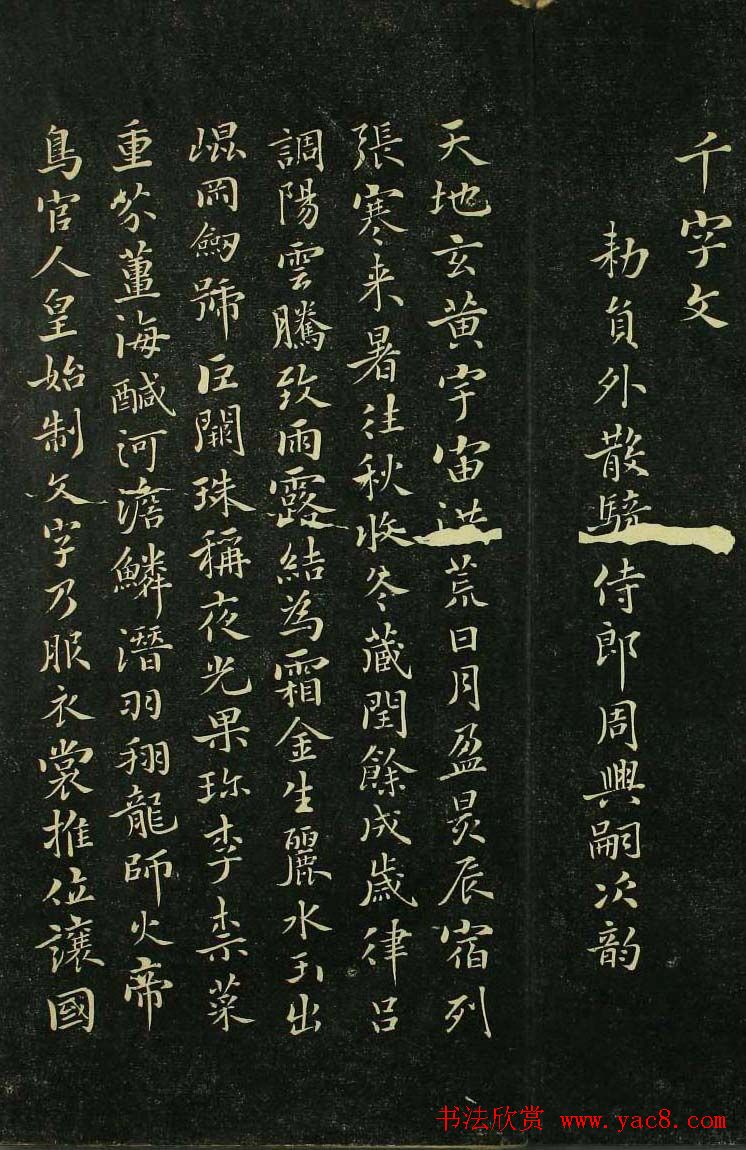 千字文
勅員外散騎侍郎周興嗣次韵
天地玄黄宇宙洪荒日月盈昃辰宿列
張寒来暑往秋收冬藏閏餘成歲律吕
調陽雲騰致雨露結為霜金生麗水玉出
崐岡劒號巨闕珠稱夜光果珎李柰菜
重芥薑海醎河澹鱗潛羽翔龍師火帝
鳥官人皇始制文字乃服衣裳推位讓國
书法欣赏 www.yac8.com